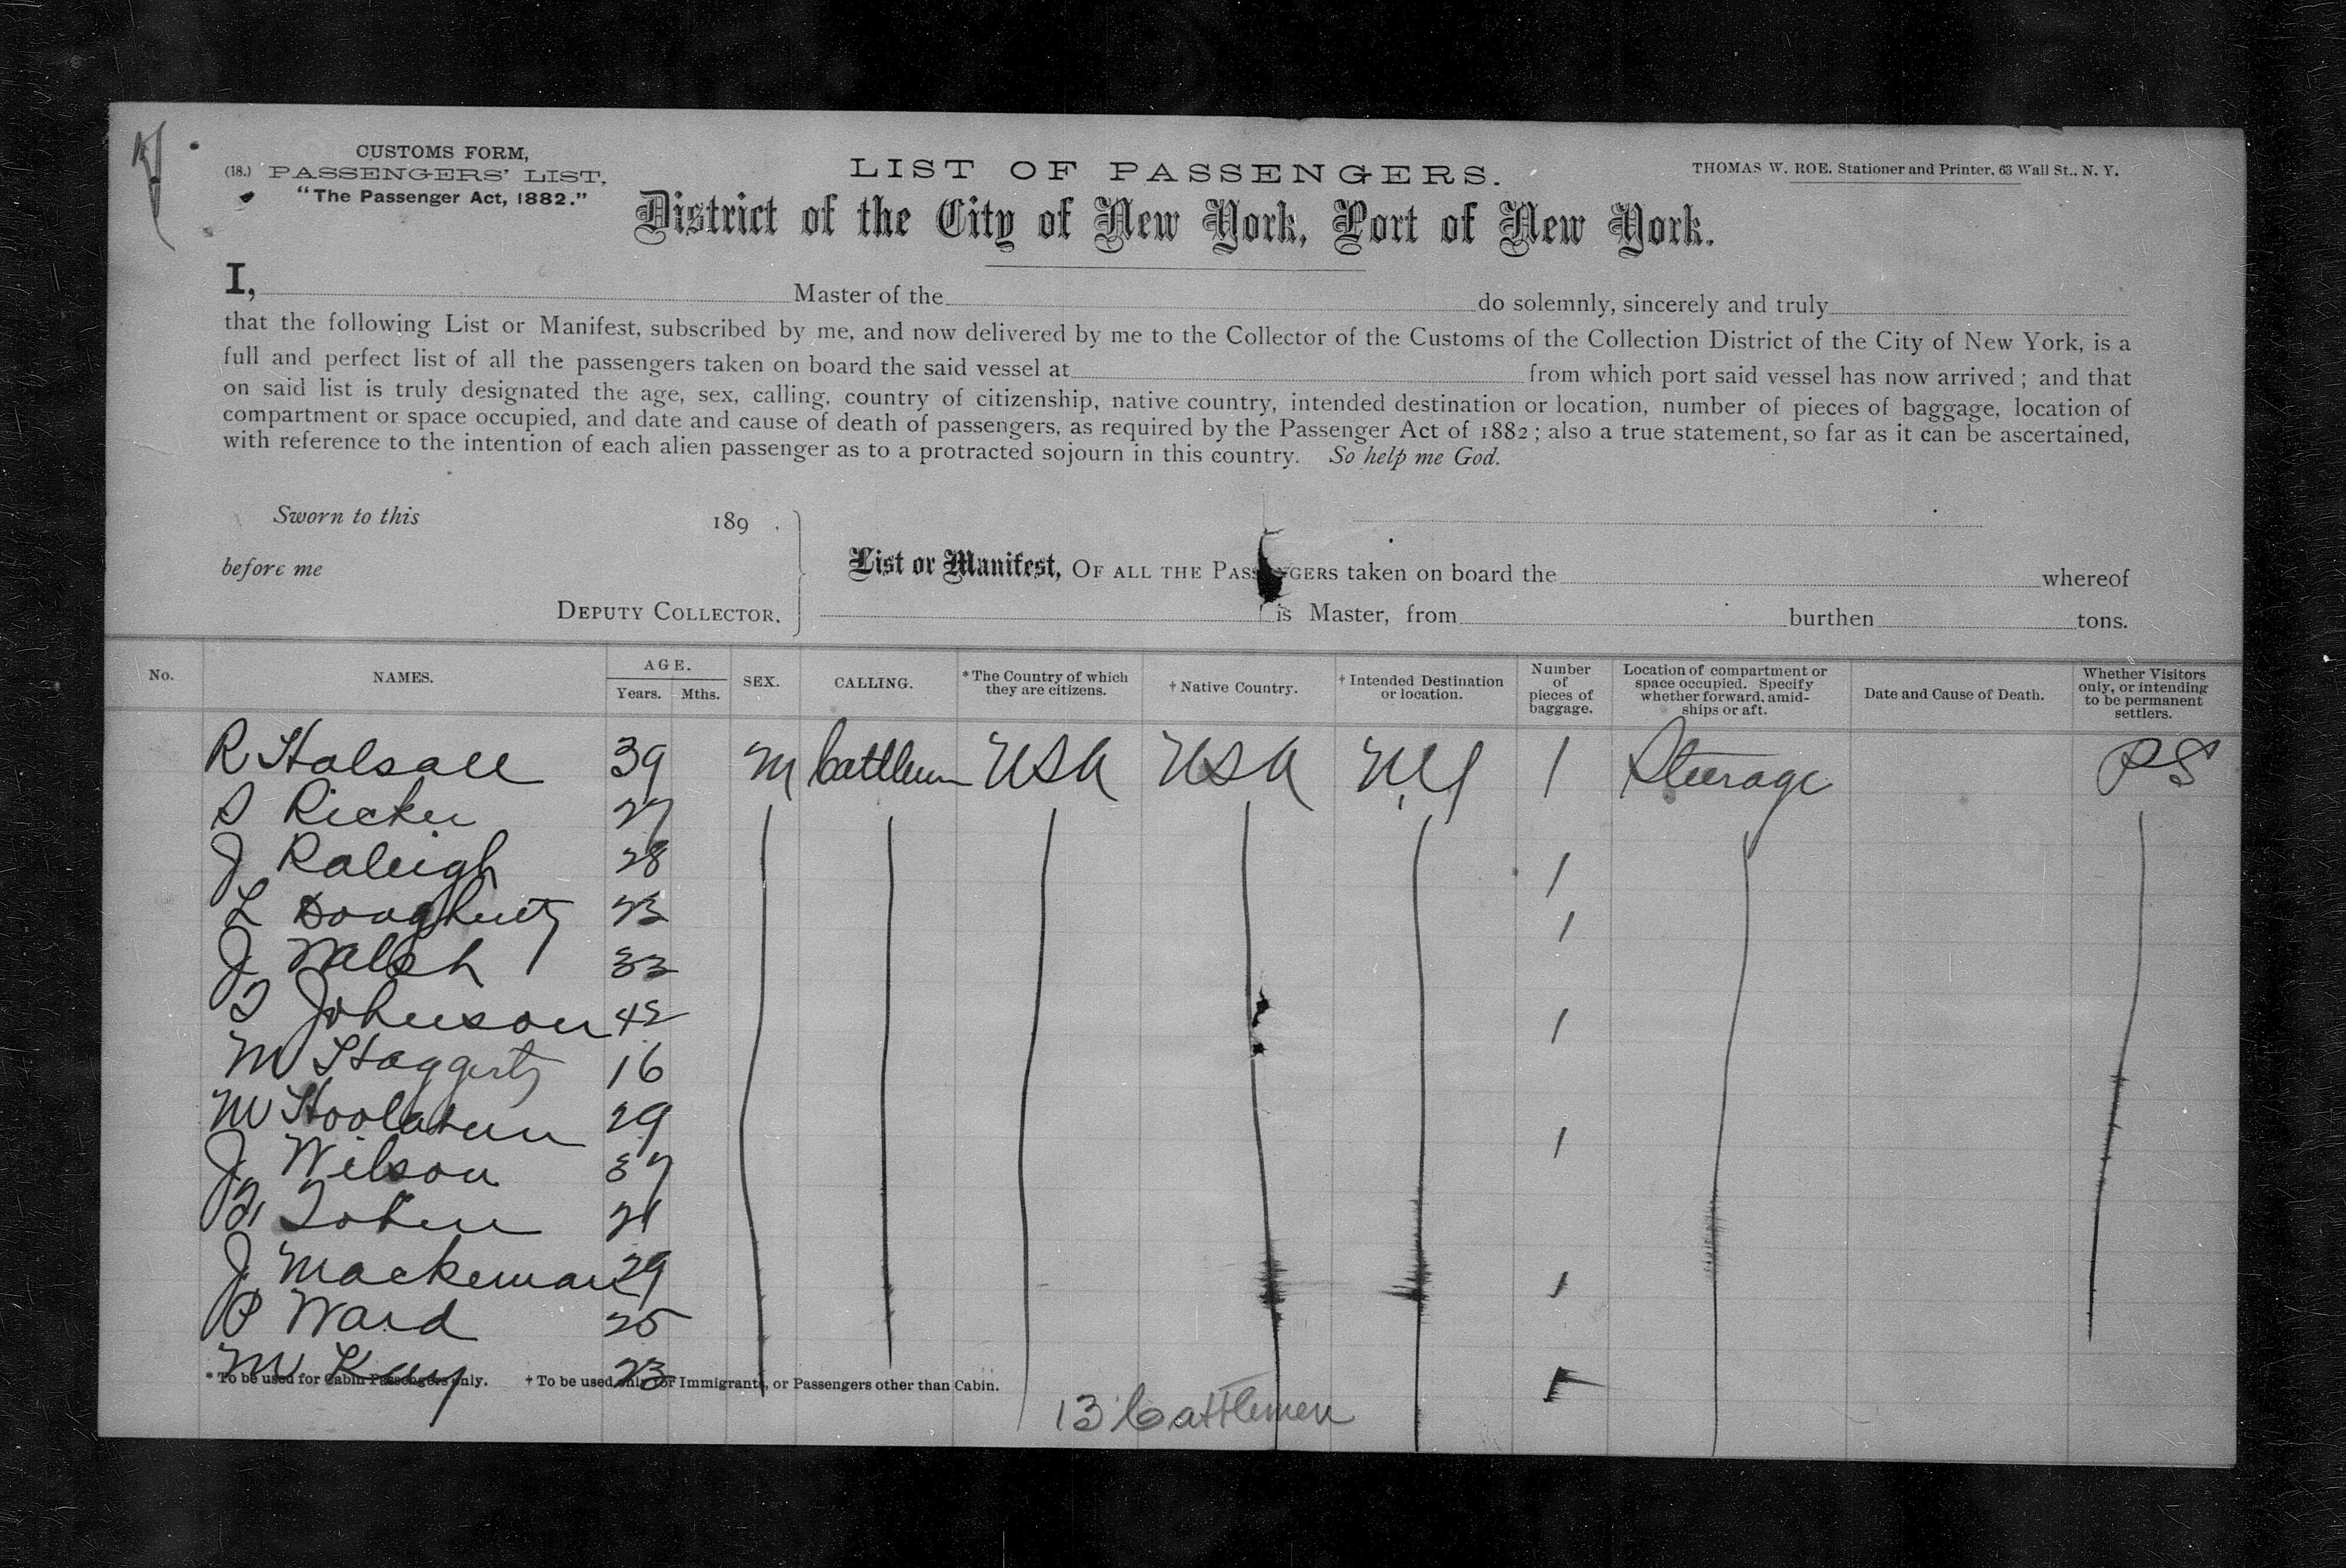 CUSTOMS FORM,
(18.) PASSENGERS' LIST,
"The Passenger Act, 1882."
LIST OF PASSENGERS.
THOMAS W. ROE. Stationer and Printer, 63 Wall St., N. Y.
District of the City of New York, Port of New York.
I, Master of the do solemnly, sincerely and truly
that the following List or Manifest, subscribed by me, and now delivered by me to the Collector of the Customs of the Collection District of the City of New York, is a
full and perfect list of all the passengers taken on board the said vessel at from which port said vessel has now arrived; and that
on said list is truly designated the age, sex, calling, country of citizenship, native country, intended destination or location, number of pieces of baggage, location of
compartment or space occupied, and date and cause of death of passengers, as required by the Passenger Act of 1882; also a true statement, so far as it can be ascertained,
with reference to the intention of each alien passenger as to a protracted sojourn in this country. So help me God.
Sworn to this 189 .
before me
DEPUTY COLLECTOR.
List or Manifest, OF ALL THE PASSENGERS taken on board the whereof
is Master, from burthen tons.
No. NAMES. AGE. Years. Mths. SEX. CALLING. * The Country of which they are citizens. † Native Country. † Intended Destination or location. Number of pieces of baggage. Location of compartment or space occupied. Specify whether forward, amidships or aft. Date and Cause of Death. Whether Visitors only, or intending to be permanent settlers.
R Halsall 39 M Cattlemen USA USA N.Y 1 Steerage PS
S Ricker 27
J Raleigh 28 1
L Dougherty 23 1
J Walsh 33
T Johnson 42 1
M Haggerty 16
M Hoolahan 29 1
J Wilson 37
Tobin 21
J Mackeman 29 1
P Ward 25
M Kay 23 1
* To be used for Cabin Passengers only. † To be used only for Immigrants, or Passengers other than Cabin.
13 Cattlemen